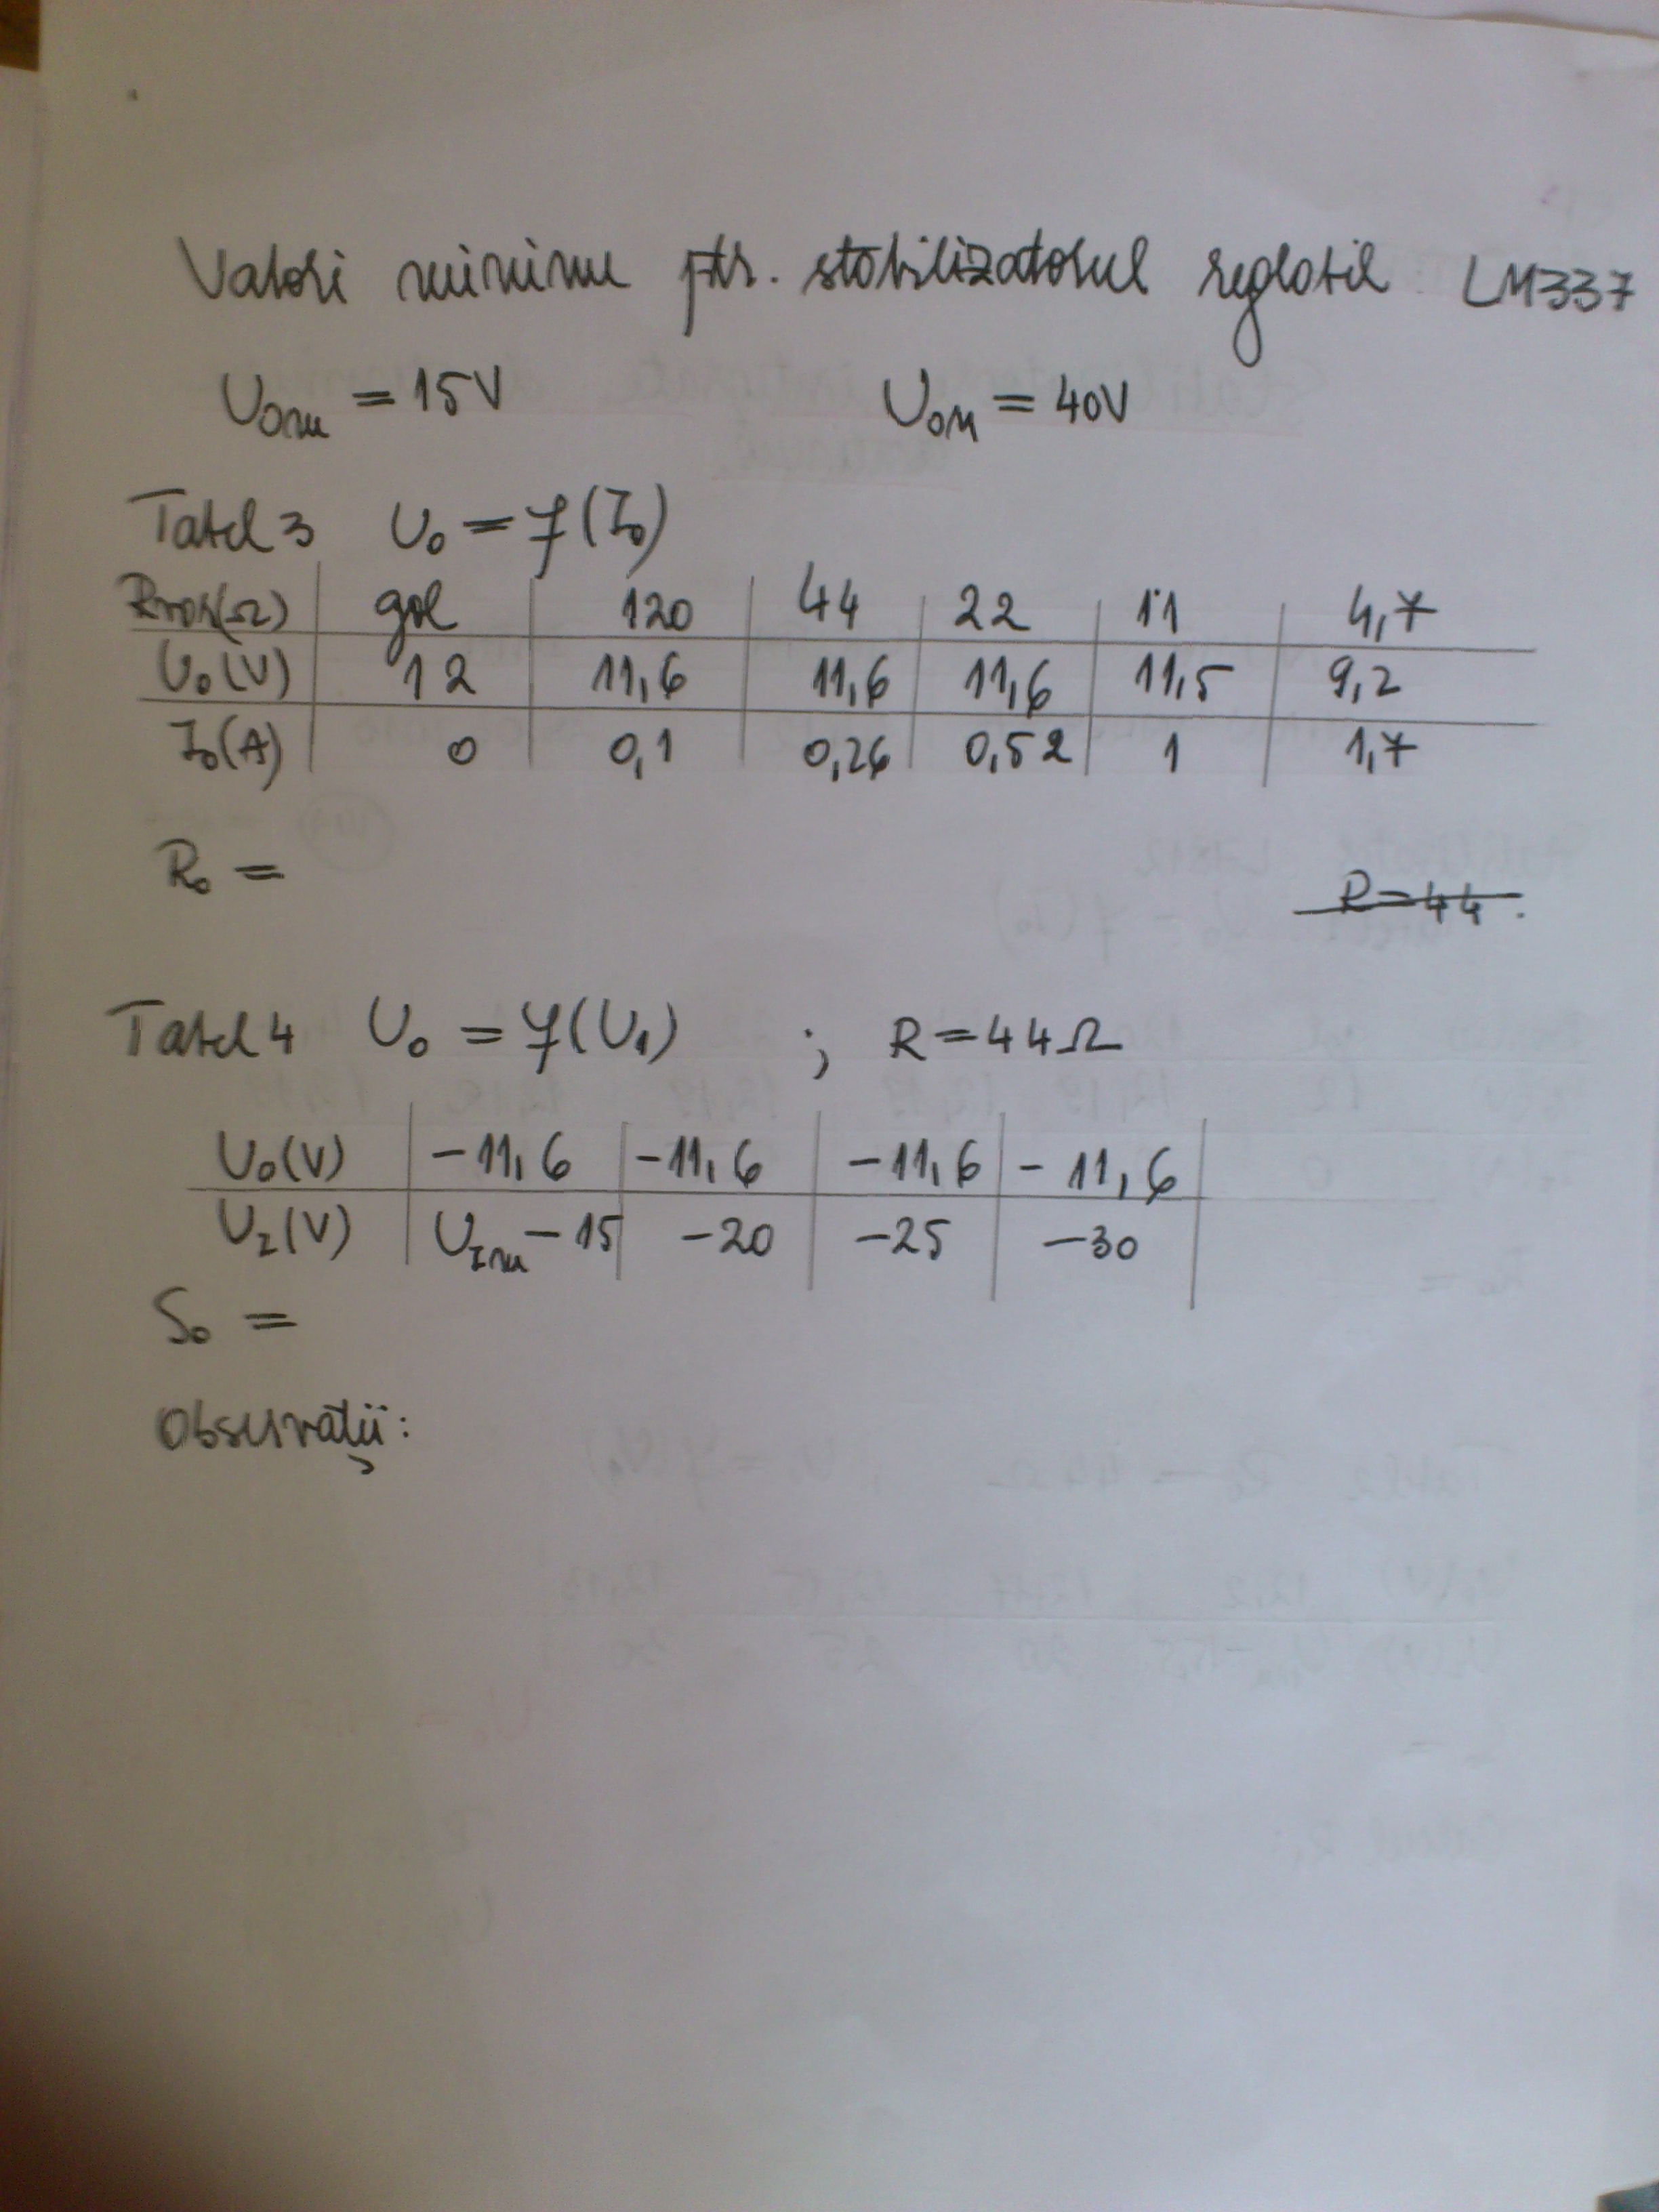 Valori minime ptr. stabilizatorul reglabil LM337
U0m = 15V U0M = 40V
Tabel 3 U0 = f(I0)
Rros(Ω) gol 120 44 22 11 4,7
U0(V) 12 11,6 11,6 11,6 11,5 9,2
I0(A) 0 0,1 0,26 0,52 1 1,7
R0 =
R=44.
Tabel 4 U0 = f(U1) ; R=44Ω
U0(V) -11,6 -11,6 -11,6 -11,6
UI(V) UIm -15 -20 -25 -30
S0 =
Observații: